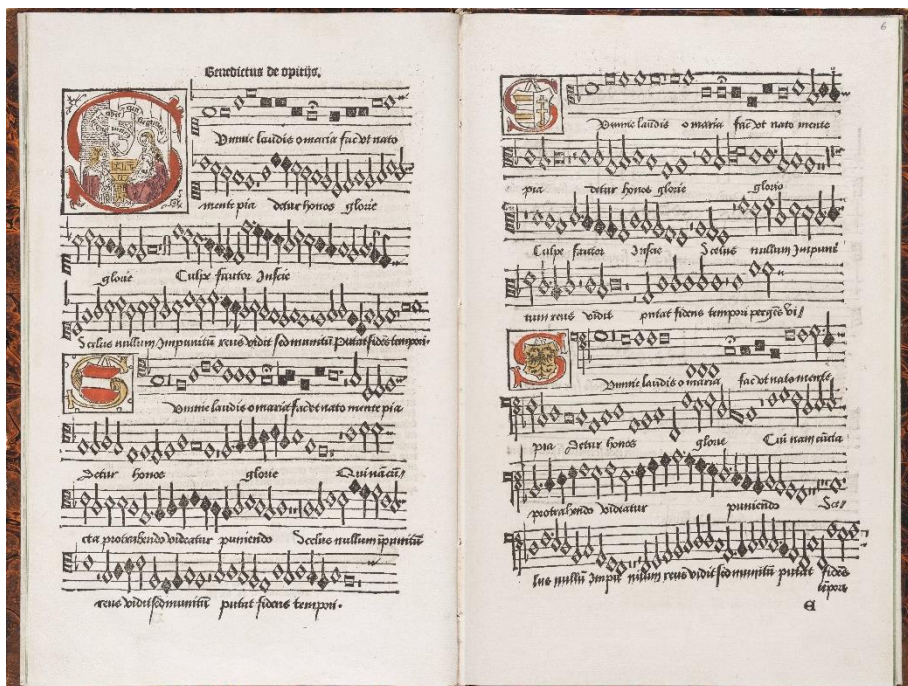 6
Benedictus de opitijs.
Summe laudis o maria fac vt nato
mente pia detur honos glorie
glorie Culpe fautor Inscie
Scelus nullum Impunitū reus vidit sed munitū Putat fidēs tempori.
Summe laudis o maria fac vt nato mente pia
detur honos glorie Cui nā cū/
cta protrahendo videatur puniendo Scelus nullum īpunitū
reus vidit sed munitū putat fidens tempori.
Summe laudis o maria fac vt nato mente
pia detur honos glorie glorie
Culpe fautor Inscie Scelus nullum Impuni
tum reus vidit putat fidens tempori
Summe laudis o maria fac vt nato mente
pia detur honos glorie Cui nam cūcta
protrahendo videatur puniendo Sce/
lus nullū Impu nitum reus vidit sed munitū putat fidēs
tēpori